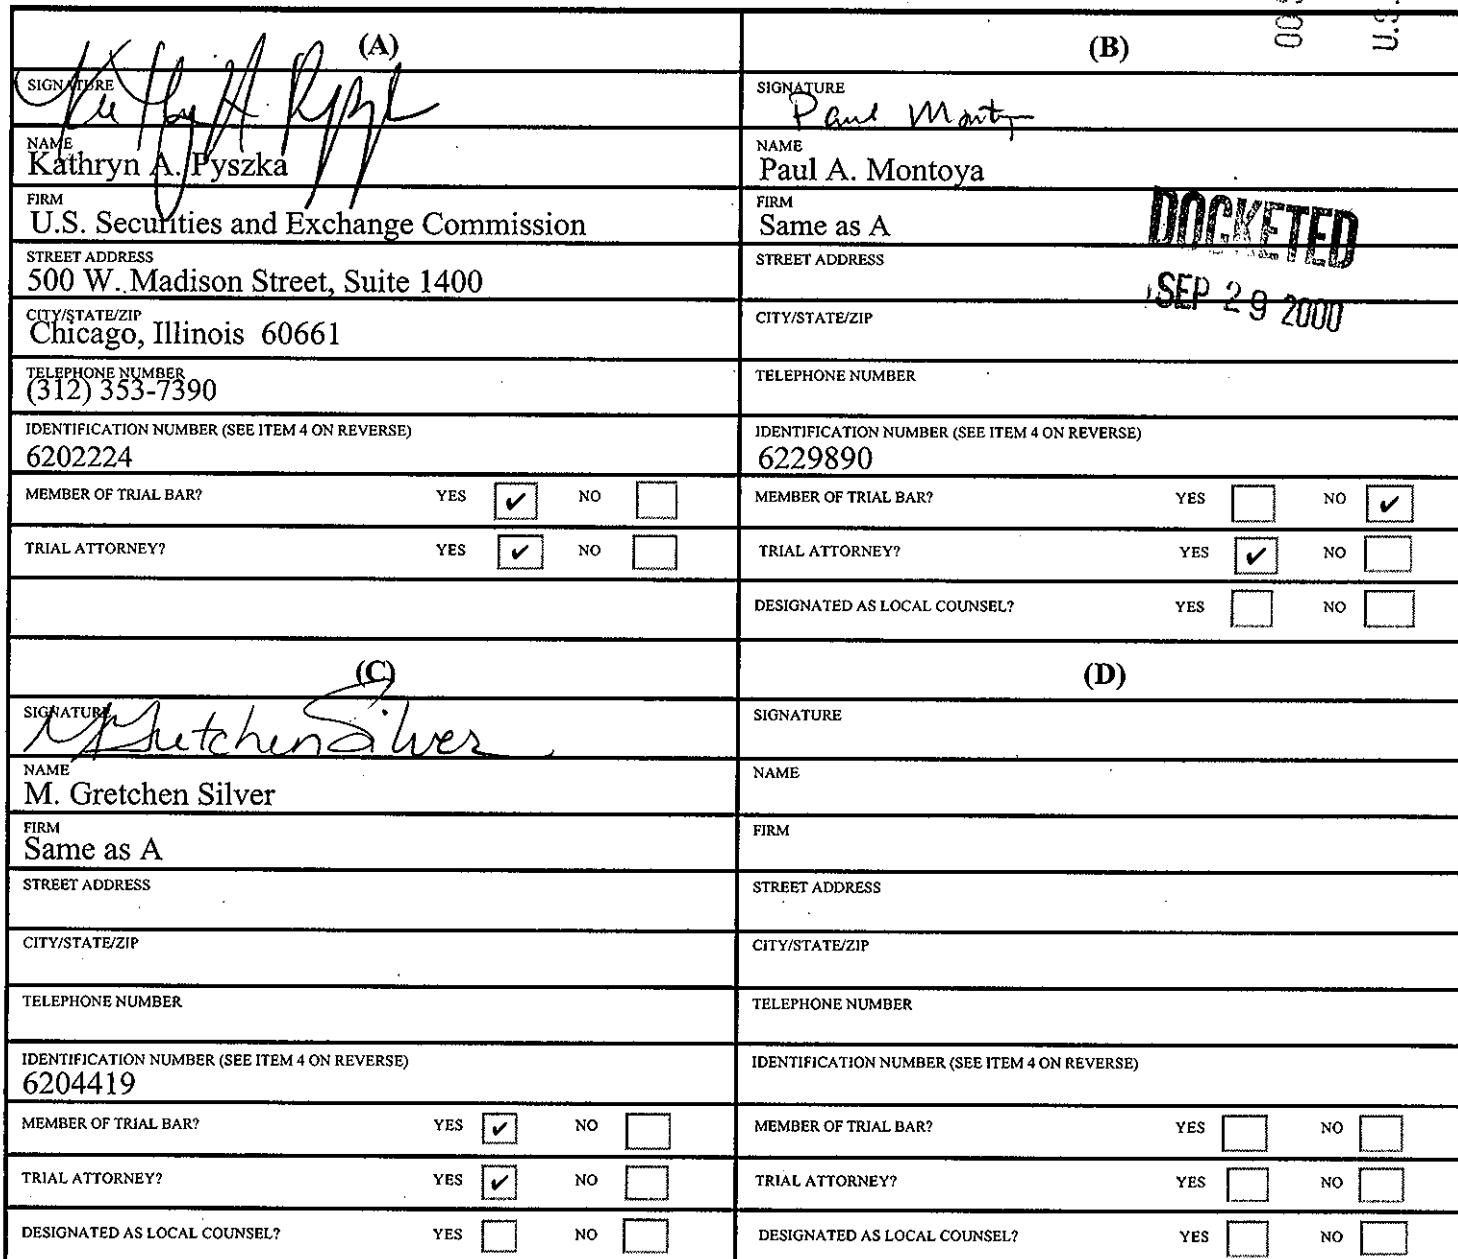 (A)
SIGNATURE
NAME
Kathryn A. Pyszka
FIRM
U.S. Securities and Exchange Commission
STREET ADDRESS
500 W. Madison Street, Suite 1400
CITY/STATE/ZIP
Chicago, Illinois 60661
TELEPHONE NUMBER
(312) 353-7390
IDENTIFICATION NUMBER (SEE ITEM 4 ON REVERSE)
6202224
MEMBER OF TRIAL BAR? YES ✔ NO
TRIAL ATTORNEY? YES ✔ NO
(B)
SIGNATURE
Paul Montoya
NAME
Paul A. Montoya
FIRM
Same as A
DOCKETED
SEP 29 2000
STREET ADDRESS
CITY/STATE/ZIP
TELEPHONE NUMBER
IDENTIFICATION NUMBER (SEE ITEM 4 ON REVERSE)
6229890
MEMBER OF TRIAL BAR? YES NO ✔
TRIAL ATTORNEY? YES ✔ NO
DESIGNATED AS LOCAL COUNSEL? YES NO
(C)
SIGNATURE
M Gretchen Silver
NAME
M. Gretchen Silver
FIRM
Same as A
STREET ADDRESS
CITY/STATE/ZIP
TELEPHONE NUMBER
IDENTIFICATION NUMBER (SEE ITEM 4 ON REVERSE)
6204419
MEMBER OF TRIAL BAR? YES ✔ NO
TRIAL ATTORNEY? YES ✔ NO
DESIGNATED AS LOCAL COUNSEL? YES NO
(D)
SIGNATURE
NAME
FIRM
STREET ADDRESS
CITY/STATE/ZIP
TELEPHONE NUMBER
IDENTIFICATION NUMBER (SEE ITEM 4 ON REVERSE)
MEMBER OF TRIAL BAR? YES NO
TRIAL ATTORNEY? YES NO
DESIGNATED AS LOCAL COUNSEL? YES NO